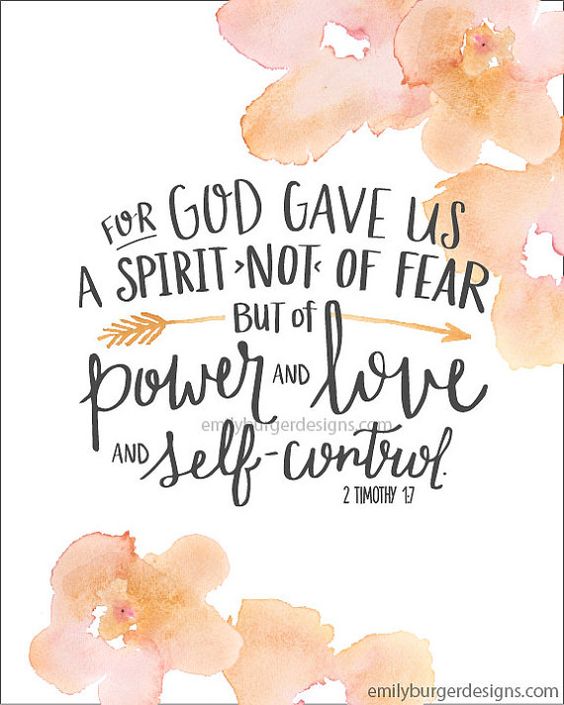 FOR GOD GAVE US
A SPIRIT >NOT< OF FEAR
BUT OF
power AND love
emilyburgerdesigns.com
AND self-control.
2 TIMOTHY 1:7
emilyburgerdesigns.com